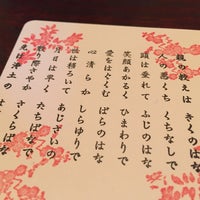 親の教えは きくのはな
人の悪くち くちなしで
頭は垂れて ふじのはな
笑顔あかるく ひまわりで
愛をはぐくむ ばらのはな
心清らか しらゆりで
世は移ろいて あじさいの
月日は早く たちばなで
散り際さやか さくらばな
先は浄土の